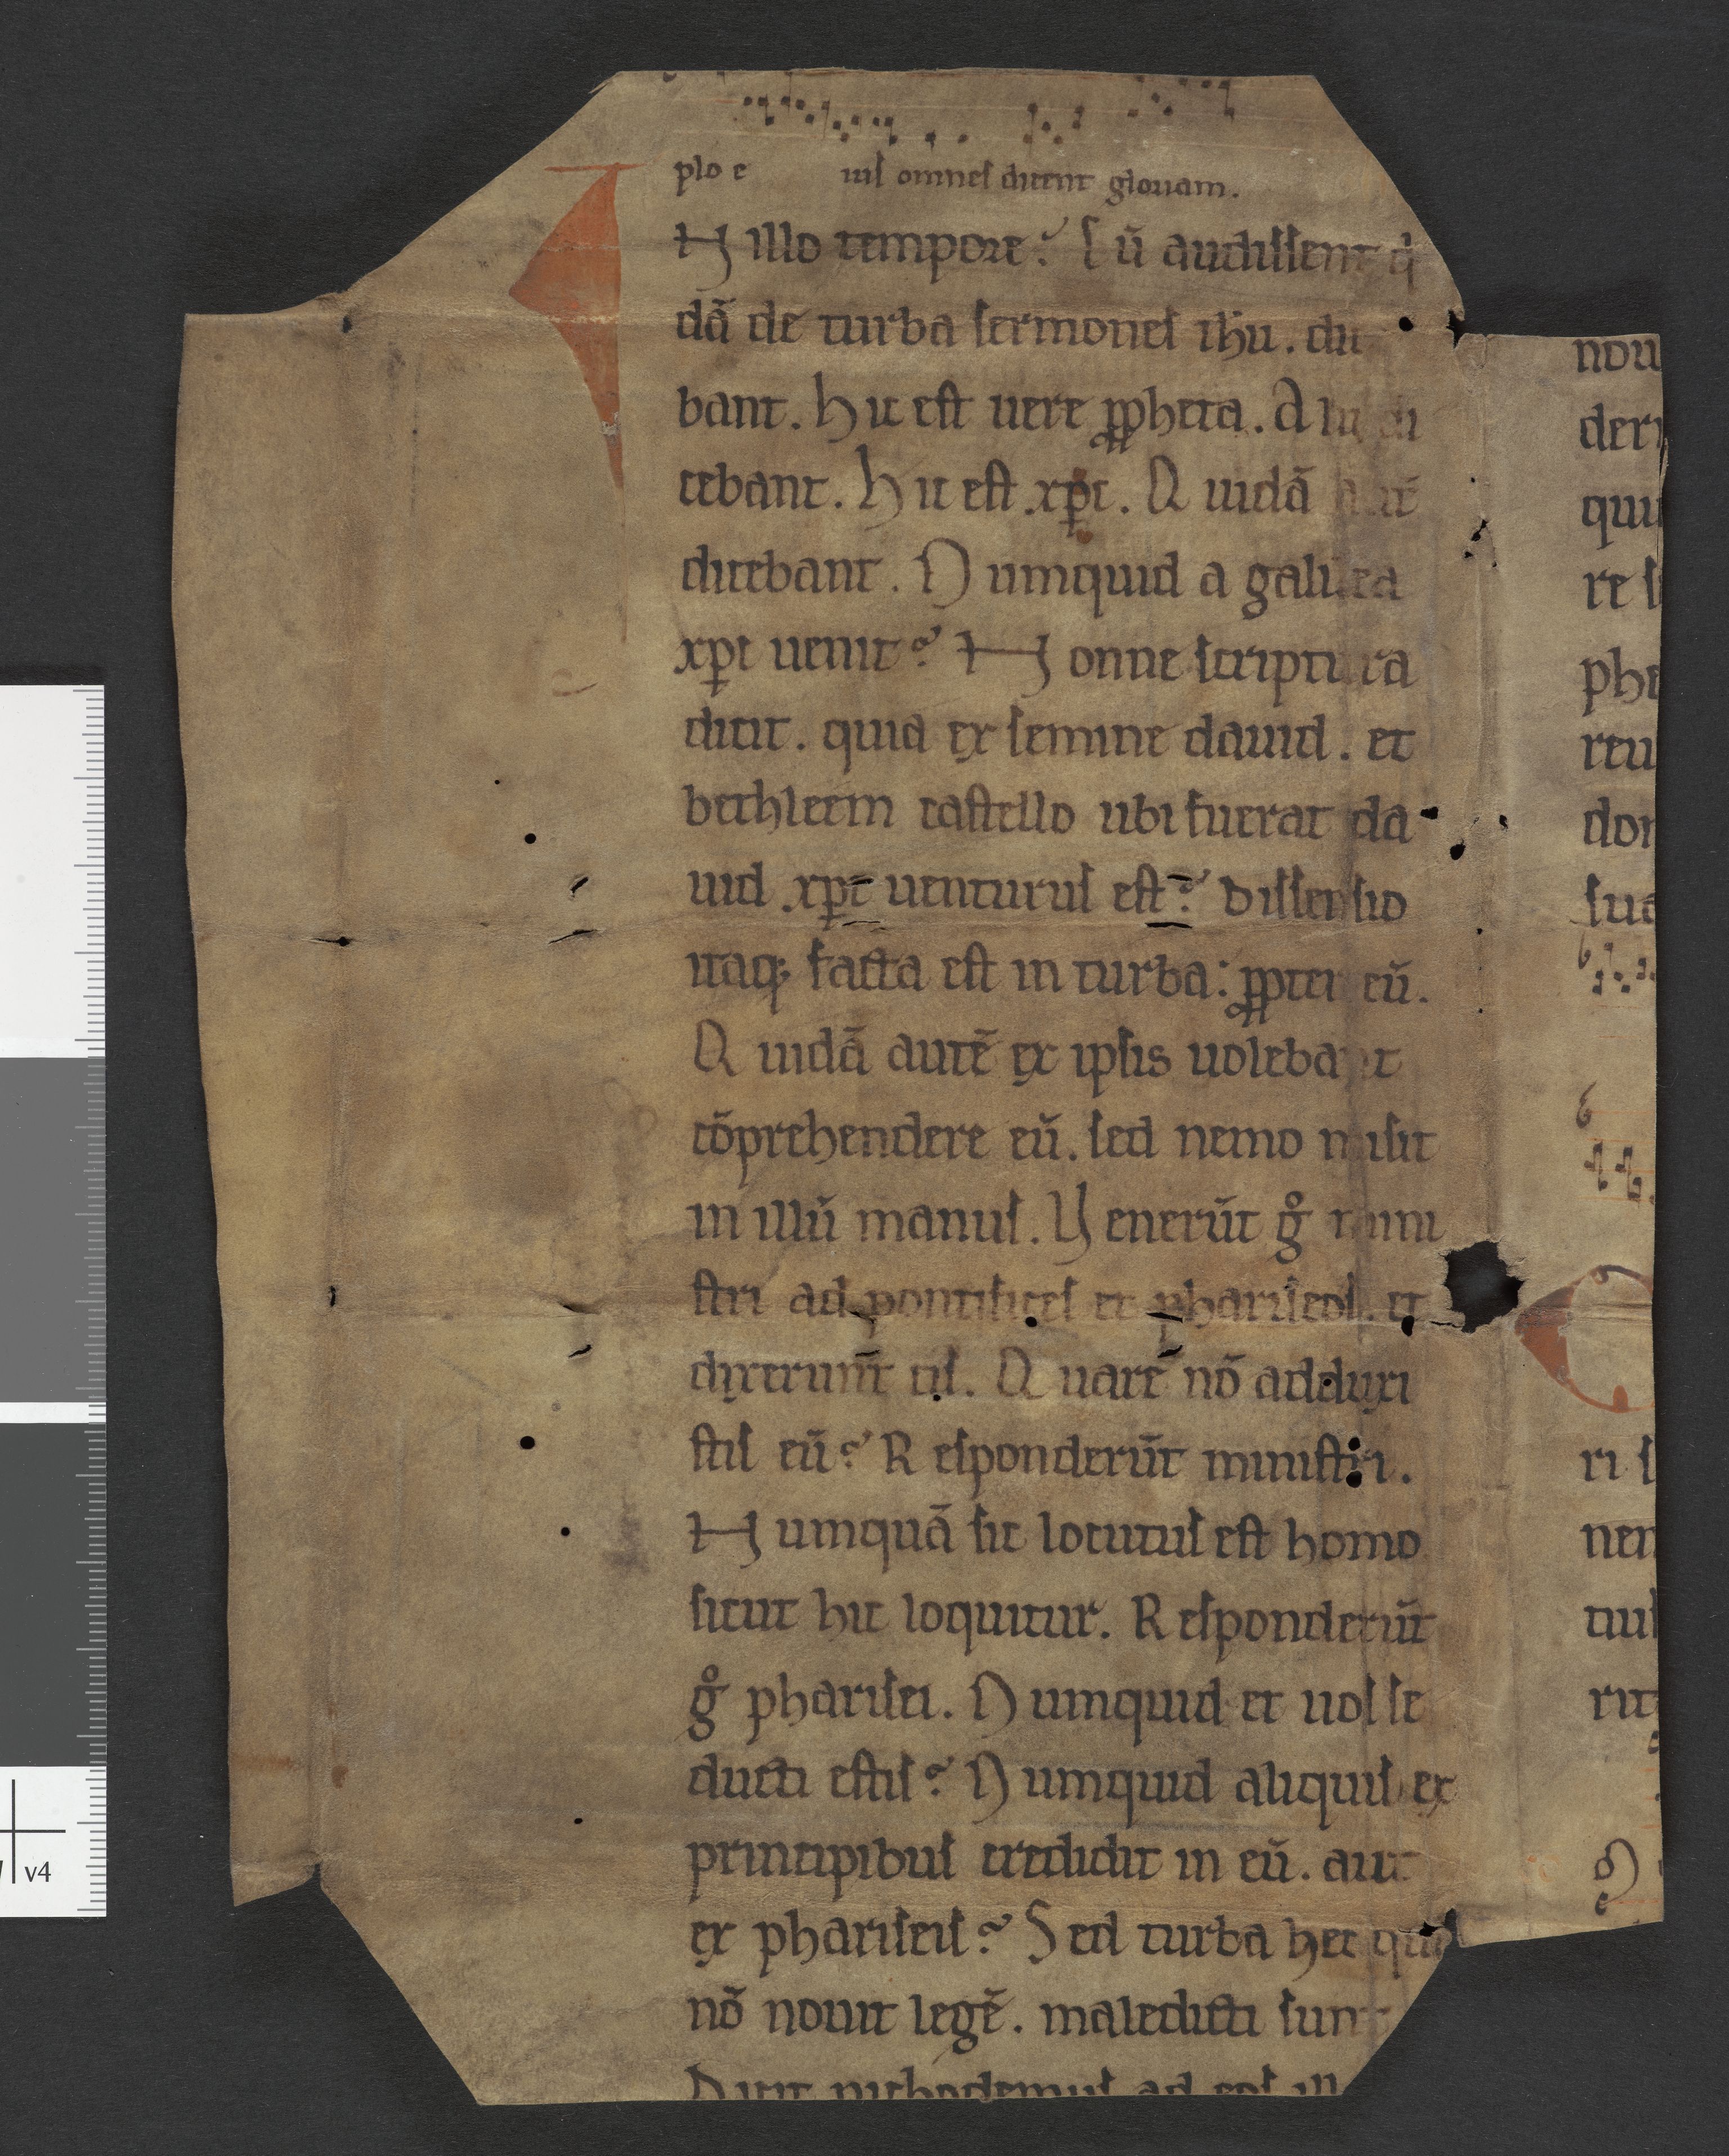 plo e ius omnes dicent gloriam.
IN illo tempore: Cū audissent q̇
dā de turba sermones ihu. di
bant. Hic est uere ꝓpheta. Alii di
cebant. Hic est xp̄c. Quidā aut̄
dicebant. Numquid a galilea
xp̄c uenit? Nonne scriptura
dicit. quia ex semine dauid. et
bethleem castello ubi fuerat da
uid xp̄c uenturus est? Dissensio
itaq; facta est in turba: ꝓpter eū.
Quidā autē ex ipsis uolebant
cōprehendere eū. sed nemo misit
in illū manus. Venerūt gͦ mini
stri ad pontifices et phariseos. et
dixerunt eis. Quare nō adduxi
stis eū? Responderūt ministri.
Numquā sic locutus est homo
sicut hic loquitur. Responderūt
gͦ pharisei. Numquid et uos se
ducti estis? Numquid aliquis ex
principibus credidit in eū. aut
ex phariseis? Sed turba hec que
nō nouit legē. maledicti sunt
Dicit nichodemus ad eos ill
nou
deri
qui
re s
phe
reu
dor
sua
ri s
nen
tul
rit